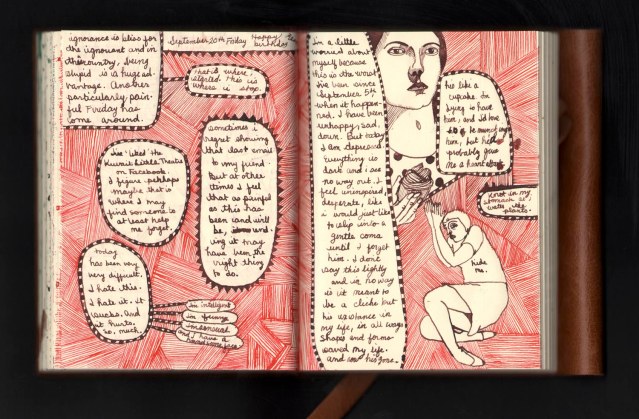 ignorance is bliss for
the ignorant and in
this country, being
stupid is a huge ad-
vantage. Another
particularly pain-
ful Friday has
come around.
September 20th Friday
Happy
birthday
that's where
started this is
where i stop.
sometimes i
regret showing
that last email
to my friend.
But at other
times I feel
that as painful
as this has
been (and will
be,
ing it may
have been the
right thing
to do.
we liked the
Kuwait Little Theatre
on Facebook.
I figure perhaps
maybe that is
where I may
find someone to
at least help
me forget.
today
has been very
very difficult.
I hate this.
I hate it. it
sucks. And
it hurts.
so. much.
im intelligent
im young
im sensual
and i have a
handsome face
im a little
worried about
myself because
this is the worst
i've been since
September 5th
when it happen-
ed. I have been
unhappy, sad,
down. But today
I am depressed
everything is
dark and i see
no way out. I
feel uninspired,
desperate, like
i would just like
to slip into a
gentle coma
until I forget
him. I don't
say this lightly
and in no way
is it meant to
be a cliche but
his existence in
my life, in all ways
shapes and forms
saved my life.
and now his gone.
his like a
cupcake. Im
dying to have
him, and id love
to
him, but he'd
probably give
me a heart attack
knot in my
stomach as i
water the
plants.
hide
me.